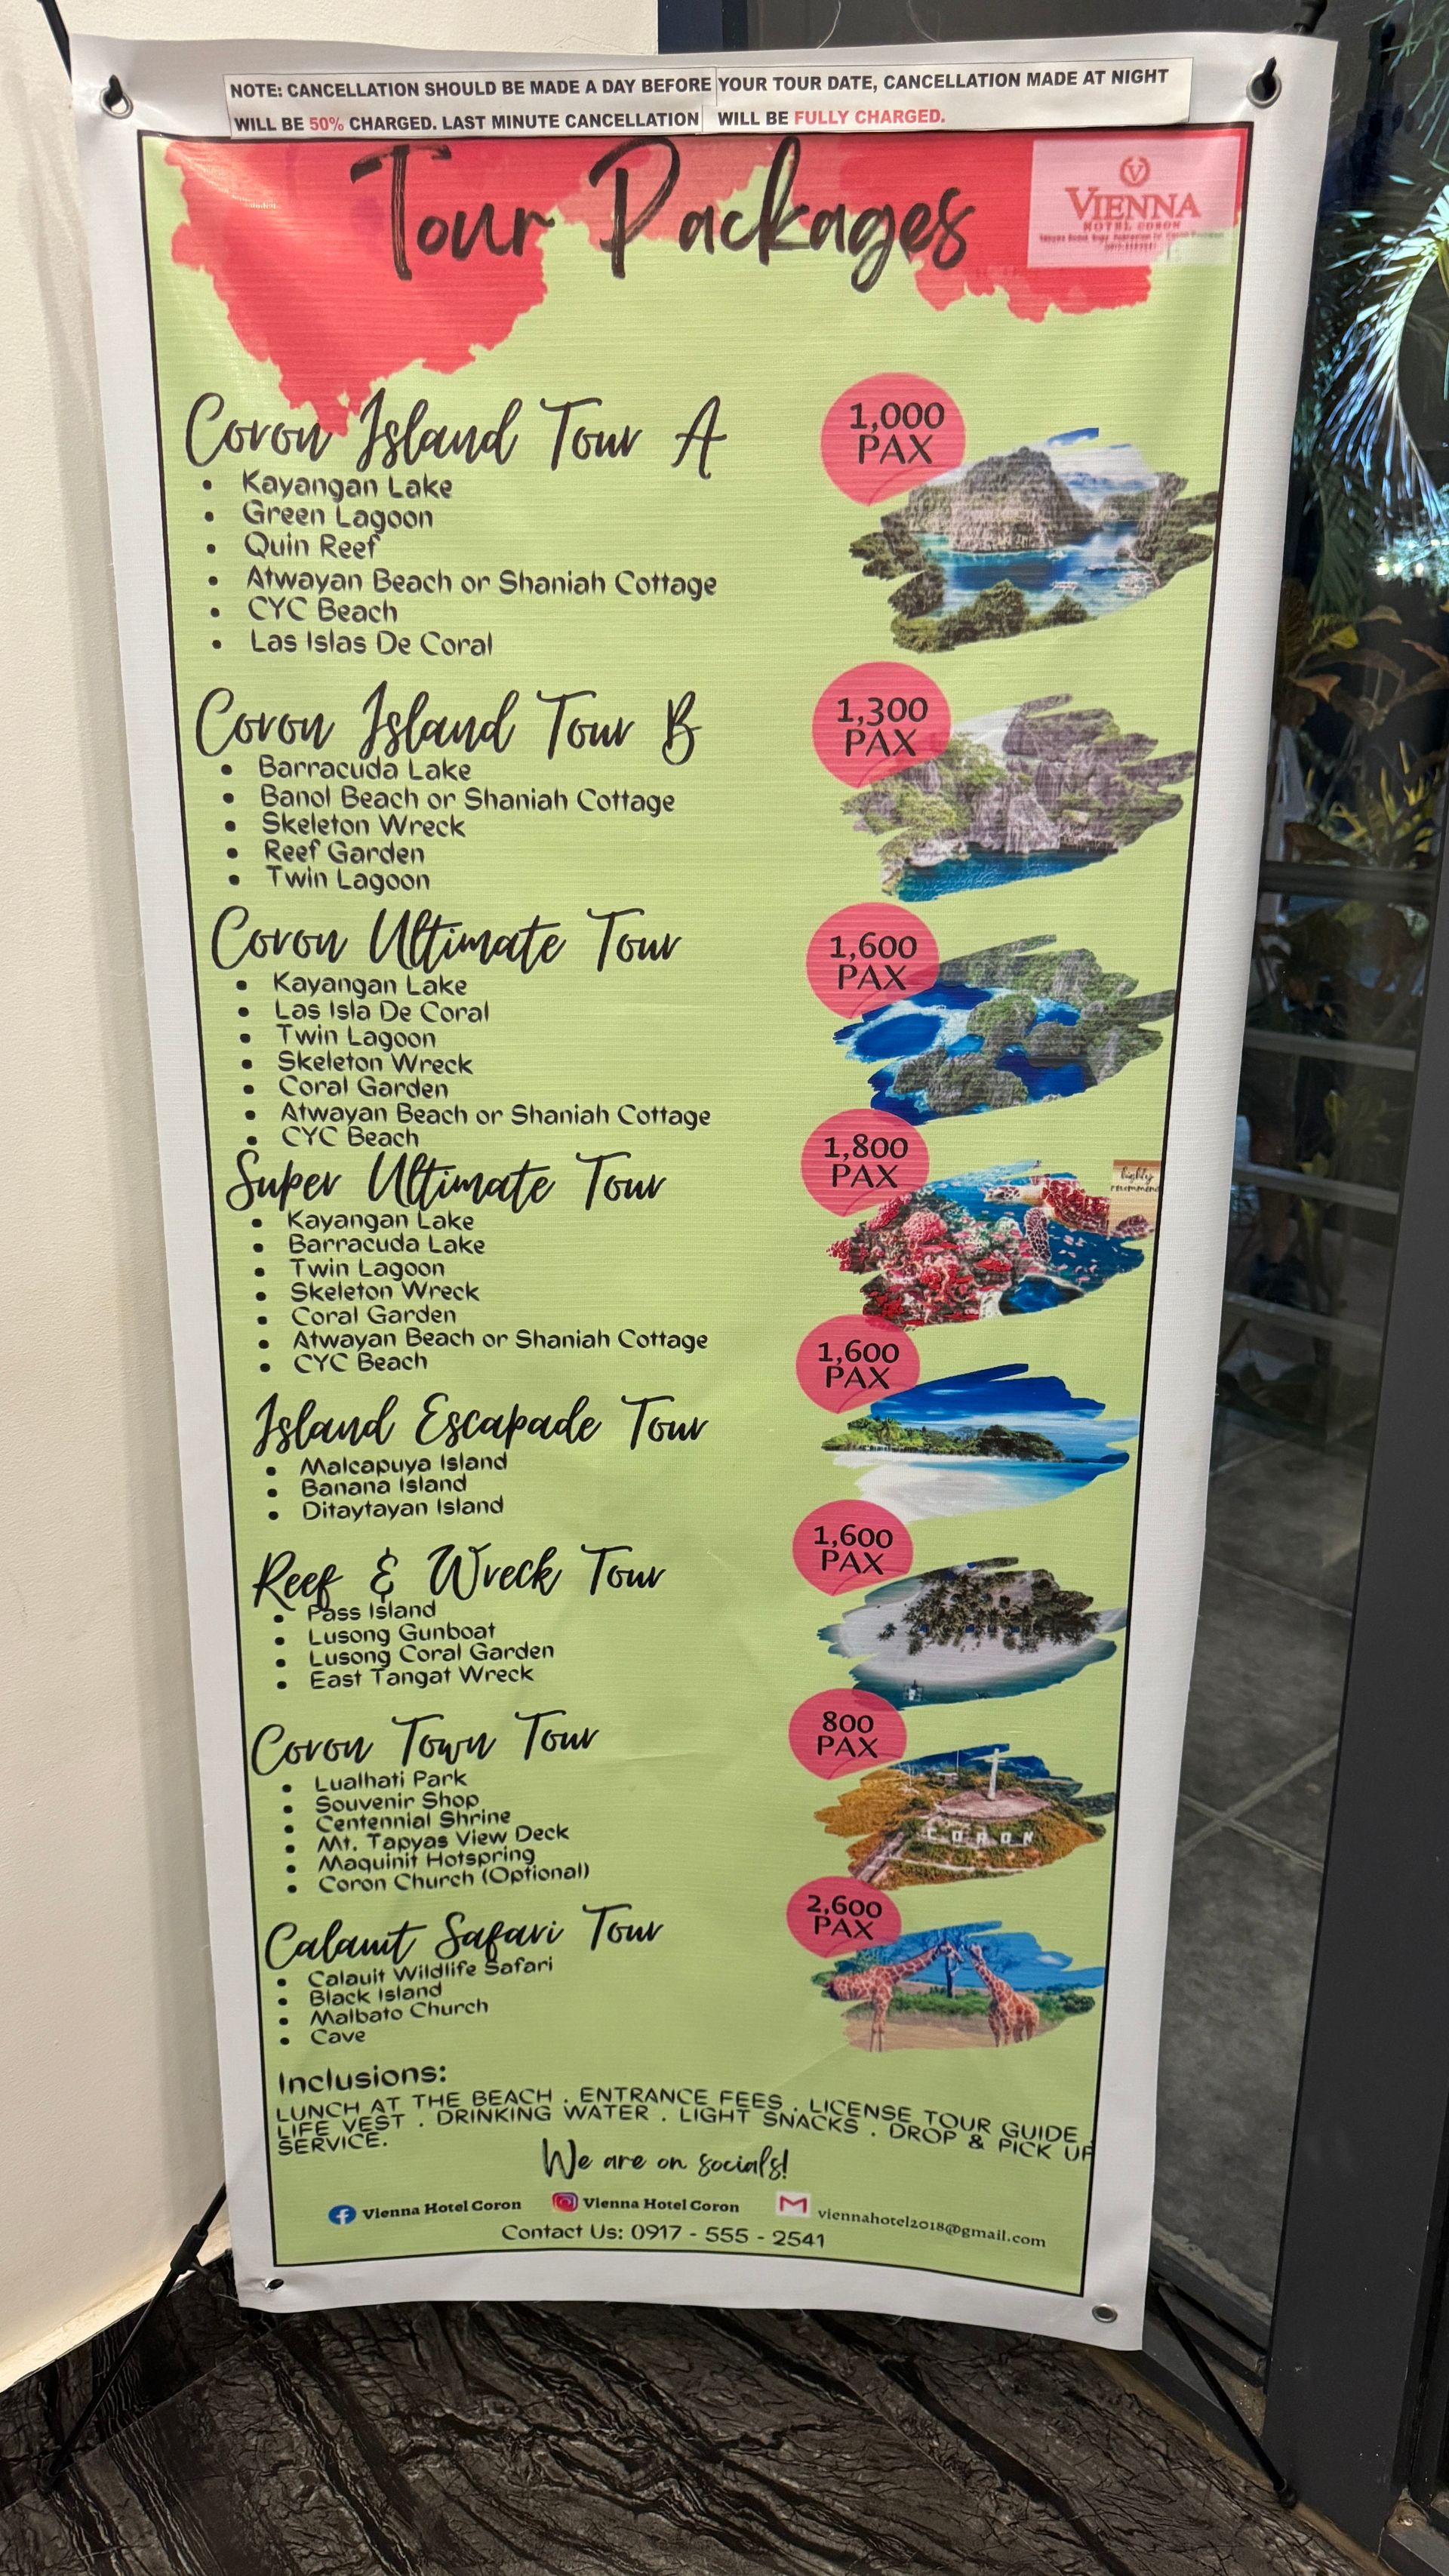 NOTE: CANCELLATION SHOULD BE MADE A DAY BEFORE YOUR TOUR DATE, CANCELLATION MADE AT NIGHT
WILL BE 50% CHARGED. LAST MINUTE CANCELLATION WILL BE FULLY CHARGED.
Tour Packages
VIENNA
HOTEL CORON
Coron Island Tour A
1,000
PAX
• Kayangan Lake
• Green Lagoon
• Quin Reef
• Atwayan Beach or Shaniah Cottage
• CYC Beach
• Las Islas De Coral
Coron Island Tour B
1,300
PAX
• Barracuda Lake
• Banol Beach or Shaniah Cottage
• Skeleton Wreck
• Reef Garden
• Twin Lagoon
Coron Ultimate Tour
1,600
PAX
• Kayangan Lake
• Las Isla De Coral
• Twin Lagoon
• Skeleton Wreck
• Coral Garden
• Atwayan Beach or Shaniah Cottage
• CYC Beach
Super Ultimate Tour
1,800
PAX
highly
recommend
• Kayangan Lake
• Barracuda Lake
• Twin Lagoon
• Skeleton Wreck
• Coral Garden
• Atwayan Beach or Shaniah Cottage
• CYC Beach
Island Escapade Tour
1,600
PAX
• Malcapuya Island
• Banana Island
• Ditaytayan Island
Reef & Wreck Tour
1,600
PAX
• Pass Island
• Lusong Gunboat
• Lusong Coral Garden
• East Tangat Wreck
Coron Town Tour
800
PAX
• Lualhati Park
• Souvenir Shop
• Centennial Shrine
• Mt. Tapyas View Deck
• Maquinit Hotspring
• Coron Church (Optional)
CORON
Calauit Safari Tour
2,600
PAX
• Calauit Wildlife Safari
• Black Island
• Malbato Church
• Cave
Inclusions:
LUNCH AT THE BEACH . ENTRANCE FEES . LICENSE TOUR GUIDE .
LIFE VEST . DRINKING WATER . LIGHT SNACKS . DROP & PICK UP
SERVICE.
We are on socials!
Vienna Hotel Coron Vienna Hotel Coron viennahotel2018@gmail.com
Contact Us: 0917 - 555 - 2541